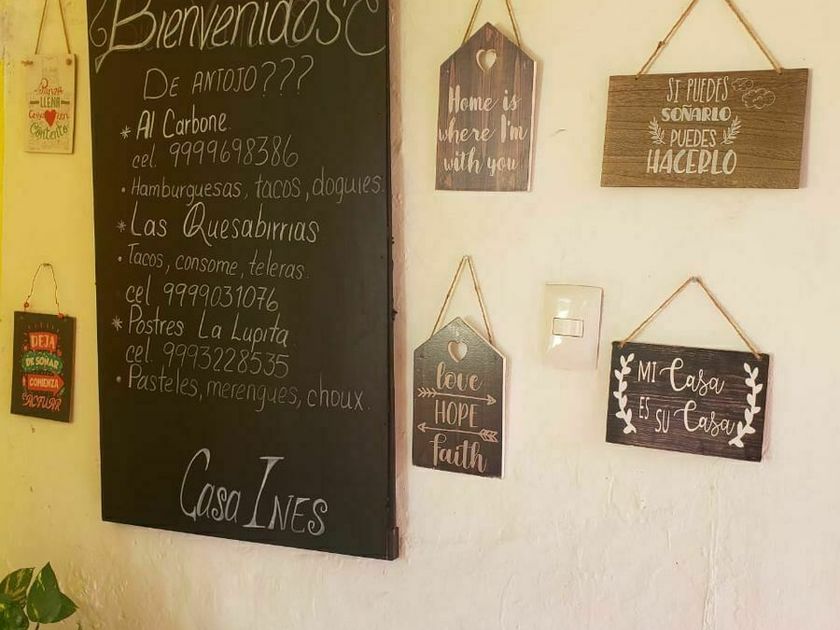 Bienvenidos
DE ANTOJO???
* Al Carbone
cel. 9999698386
• Hamburguesas, tacos, doguies.
* Las Quesabirrias
• Tacos, consome, teleras.
cel 9999031076
* Postres La Lupita
cel. 9993228535
• Pasteles, merengues, choux.
Casa INES
Panza
LLENA
Corazón
Contento
DEJA
DE SOÑAR
COMIENZA
A ACTUAR
Home is
where I'm
with you
SI PUEDES
SOÑARLO
PUEDES
HACERLO
love
HOPE
faith
MI Casa
ES
SU Casa